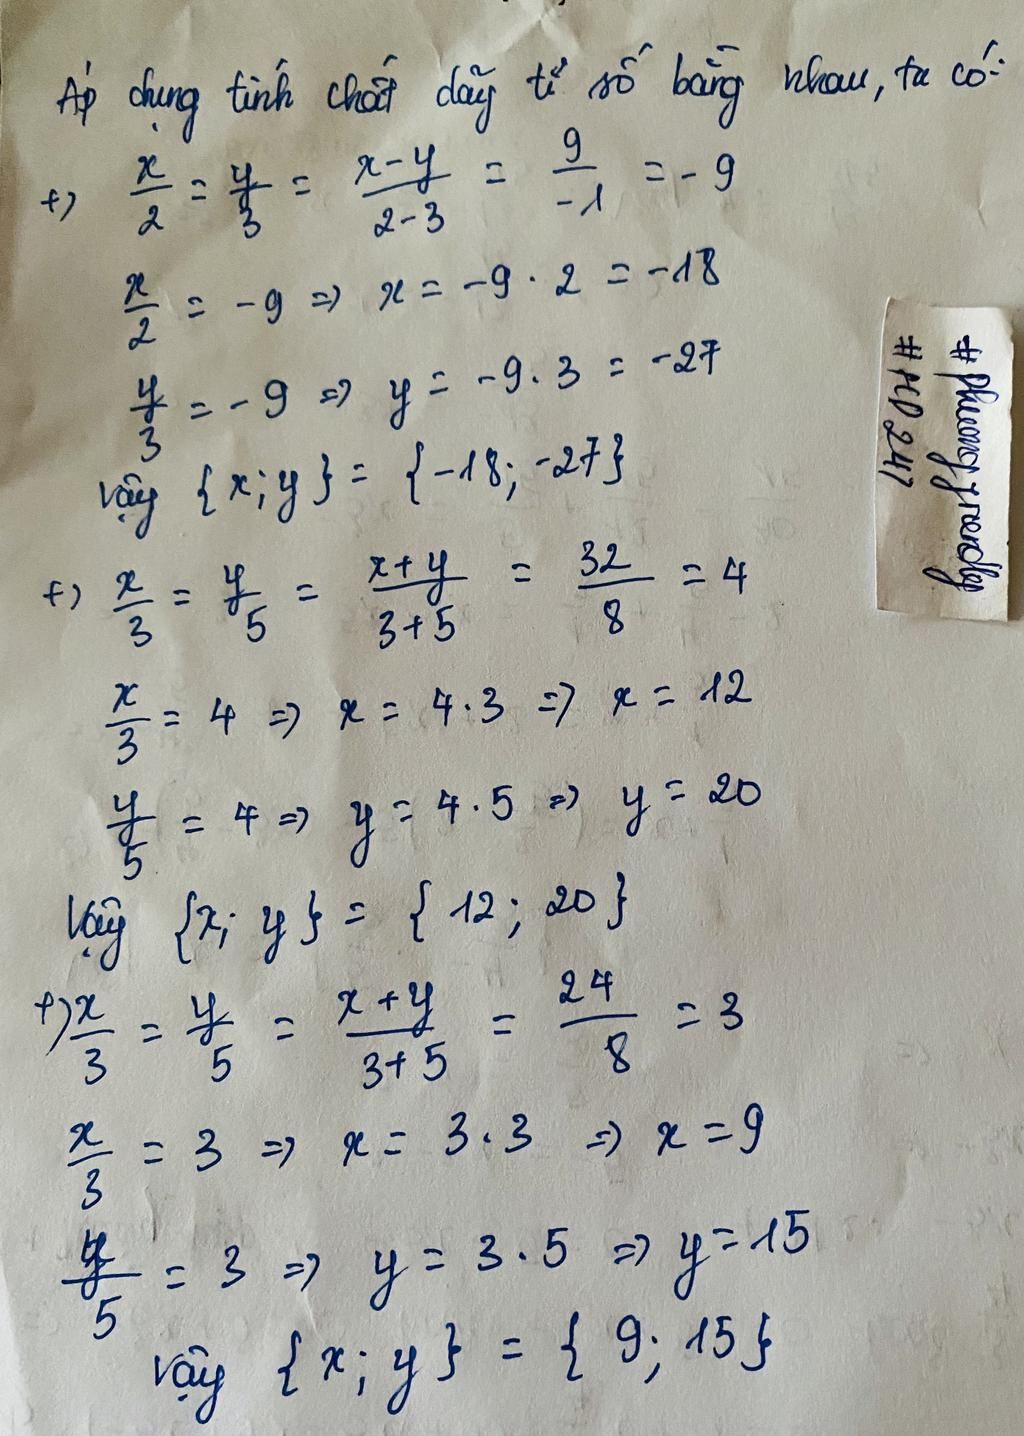 Áp dụng tính chất dãy tỉ số bằng nhau, ta có:
+) x/2 = y/3 = (x-y)/(2-3) = 9/-1 = -9
x/2 = -9 => x = -9 . 2 = -18
y/3 = -9 => y = -9 . 3 = -27
Vậy {x; y} = {-18; -27}
+) x/3 = y/5 = (x+y)/(3+5) = 32/8 = 4
x/3 = 4 => x = 4 . 3 => x = 12
y/5 = 4 => y = 4 . 5 => y = 20
Vậy {x; y} = {12; 20}
+) x/3 = y/5 = (x+y)/(3+5) = 24/8 = 3
x/3 = 3 => x = 3 . 3 => x = 9
y/5 = 3 => y = 3 . 5 => y = 15
Vậy {x; y} = {9; 15}